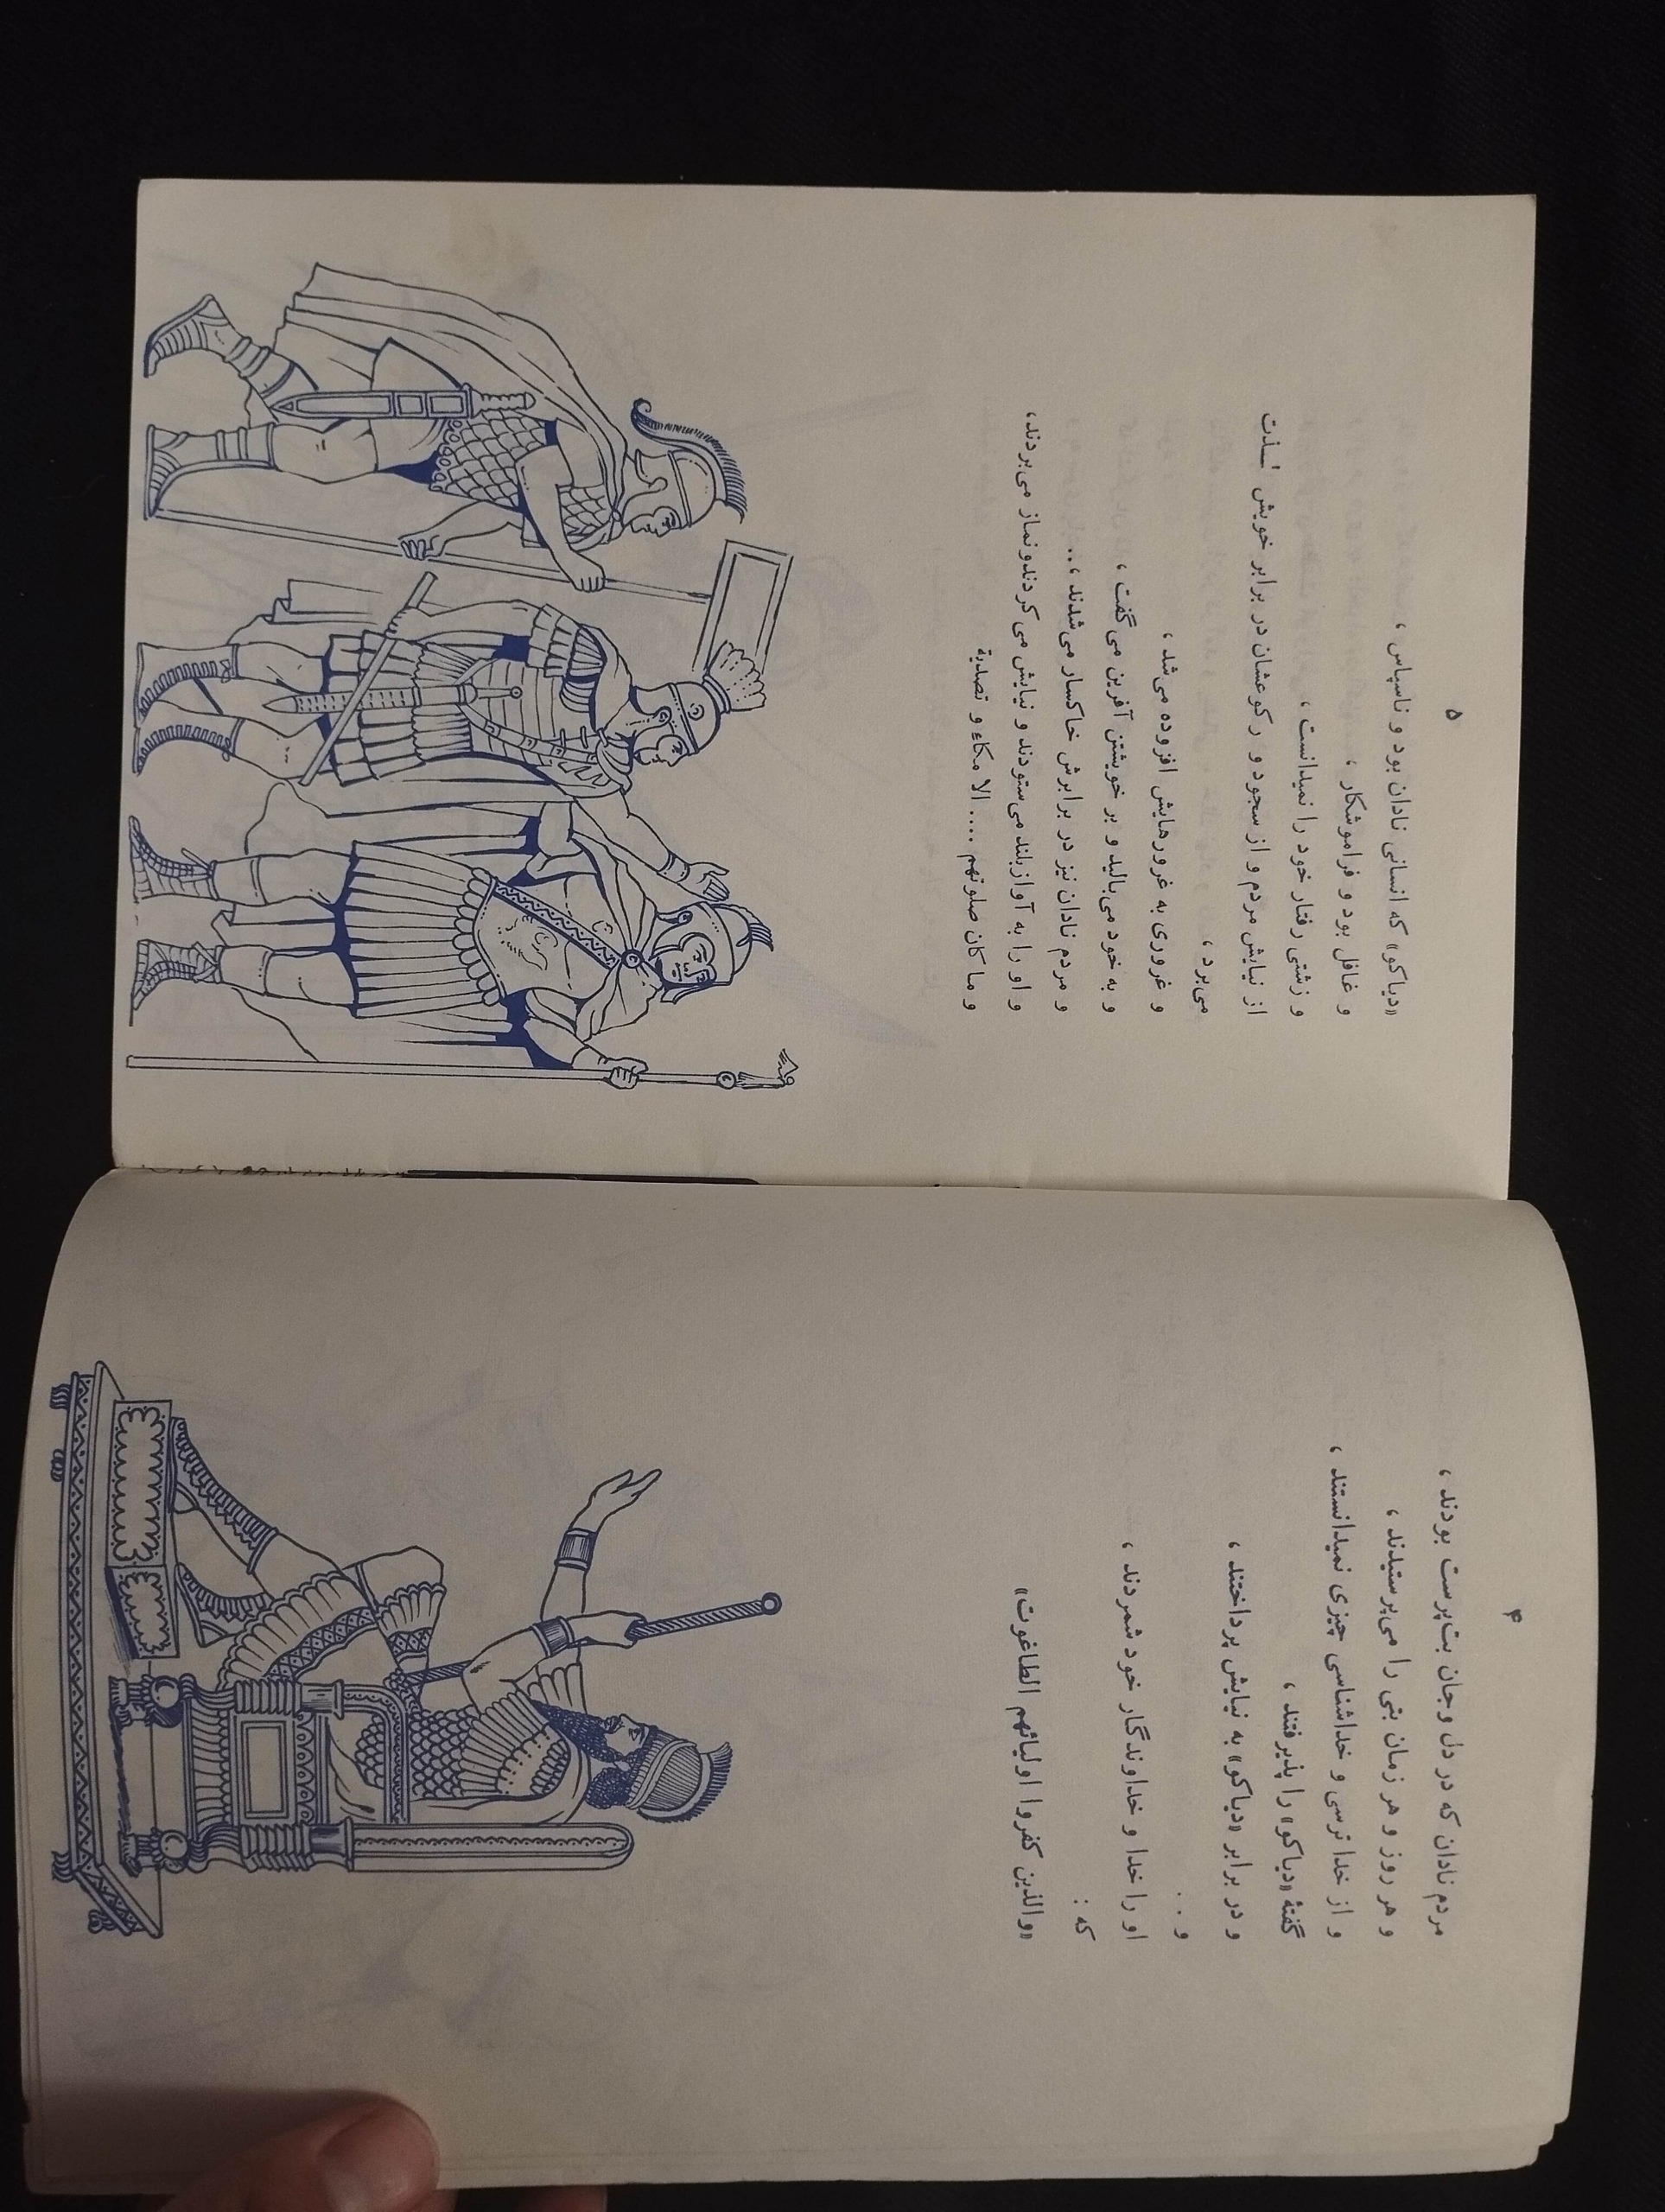 ۴
مردم نادان که در دل و جان بت‌پرست بودند ،
و هر روز و هر زمان بتی را می‌پرستیدند ،
و از خدا ترسی و خداشناسی چیزی نمیدانستند ،
گفتهٔ «دیاکو» را پذیرفتند ،
و در برابر «دیاکو» به نیایش پرداختند ،
و . . .
او را خدا و خداوندگار خود شمردند ،
که :
«والذین کفروا اولیائهم الطاغوت»
۵
«دیاکو» که انسانی نادان بود و ناسپاس ،
و غافل بود و فراموشکار ،
و زشتی رفتار خود را نمیدانست ،
از نیایش مردم و از سجود و رکوعشان در برابر خویش لـذت
می‌برد ،
و غروری به غرورهایش افزوده می‌شد ،
و به خود می‌بالید و بر خویشتن آفرین می‌گفت ،
و مردم نادان نیز در برابرش خاکسار می‌شدند ،..
و او را به آواز بلند می‌ستودند و نیایش می‌کردند و نماز می‌بردند،
و ما کان صلوتهم .... الا مکاء و تصدیة